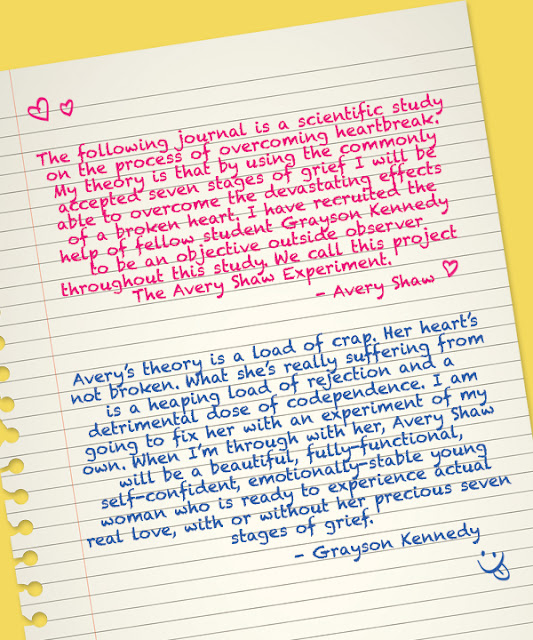 The following journal is a scientific study
on the process of overcoming heartbreak.
My theory is that by using the commonly
accepted seven stages of grief I will be
able to overcome the devastating effects
of a broken heart. I have recruited the
help of fellow student Grayson Kennedy
to be an objective outside observer
throughout this study. We call this project
The Avery Shaw Experiment.
- Avery Shaw
Avery's theory is a load of crap. Her heart's
not broken. What she's really suffering from
is a heaping load of rejection and a
detrimental dose of codependence. I am
going to fix her with an experiment of my
own. When I'm through with her, Avery Shaw
will be a beautiful, fully-functional,
self-confident, emotionally-stable young
woman who is ready to experience actual
real love, with or without her precious seven
stages of grief.
- Grayson Kennedy